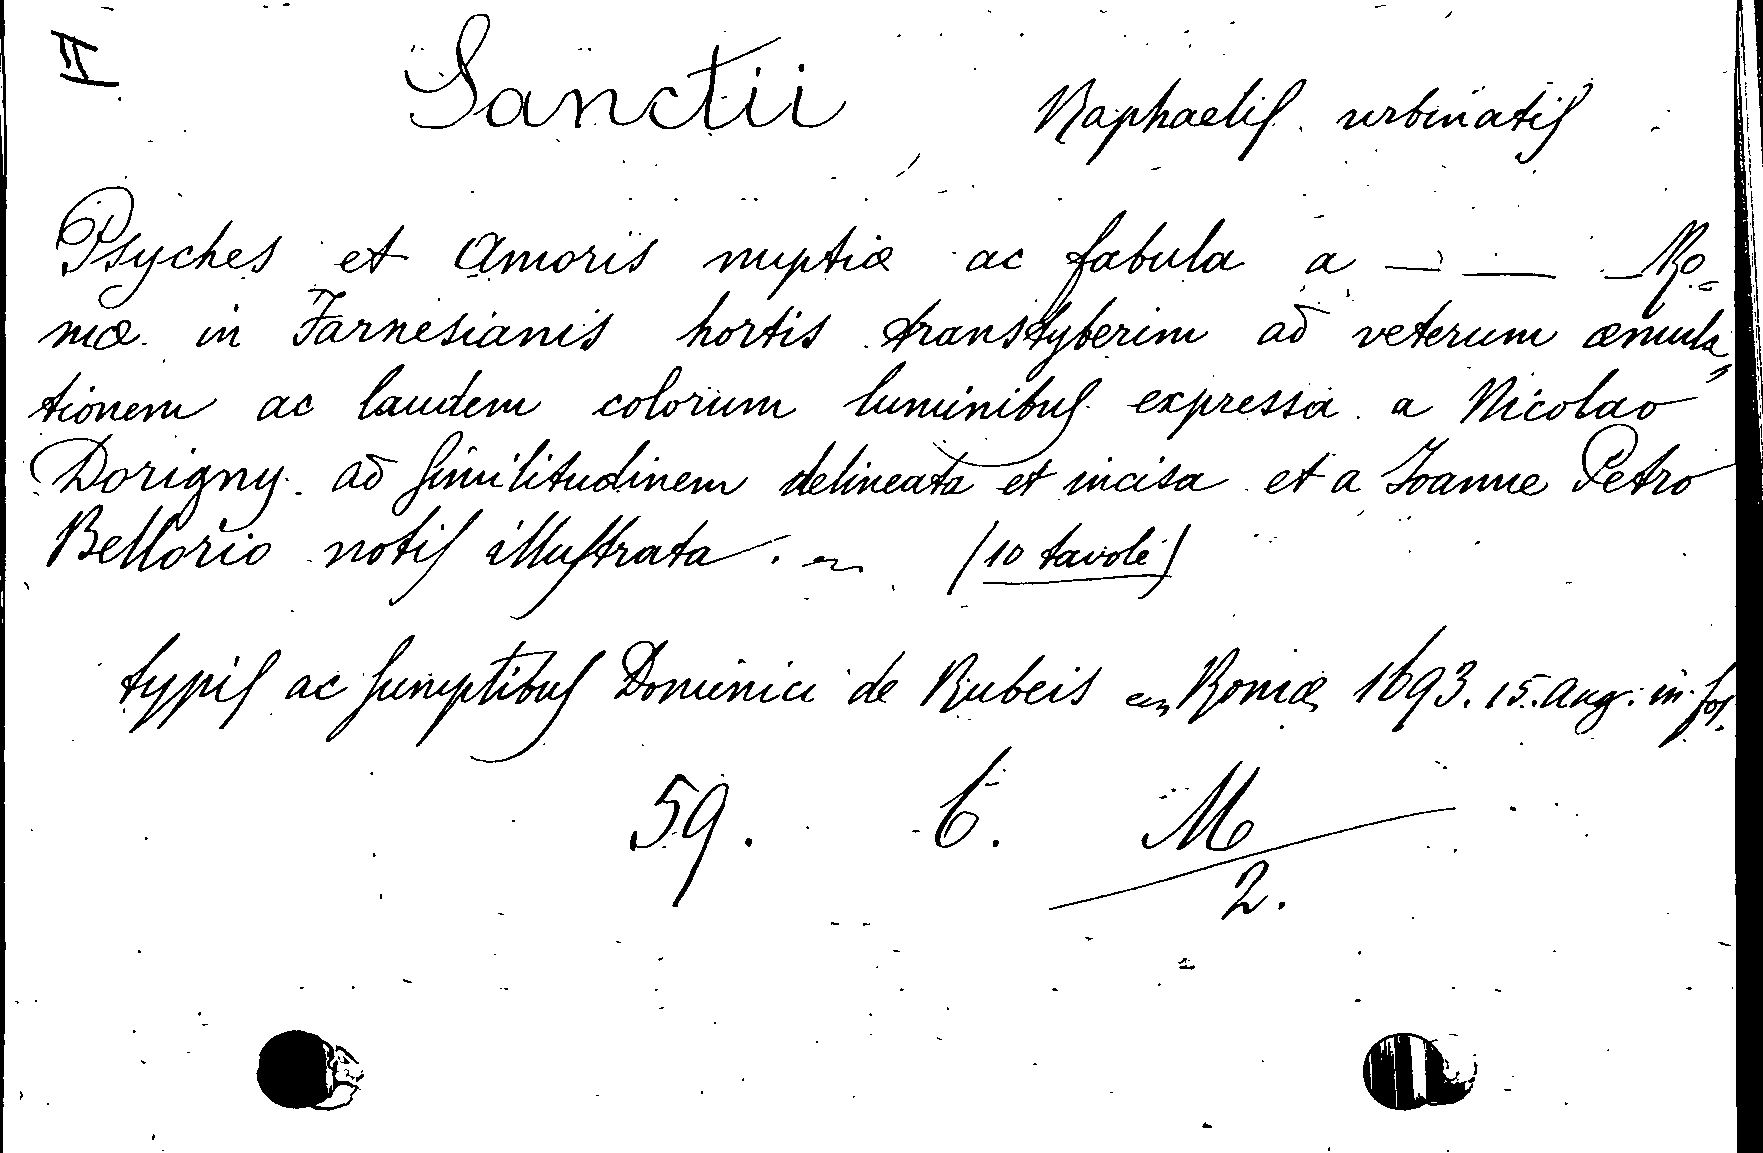 II Sanctii Raphaelis urbinatis
Psyches et Amoris nuptiæ ac fabula a — — — Ro=
mæ in Farnesianis hortis transtyberim ad veterum æmula„
tionem ac laudem colorum luminibus expressa a Nicolao
Dorigny ad similitudinem delineata et incisa et a Joanne Petro
Bellorio notis illustrata. — (10 tavole)
typis ac sumptibus Dominici de Rubeis — Romæ 1693. 15. Aug: in fol.
59. C. M
2.